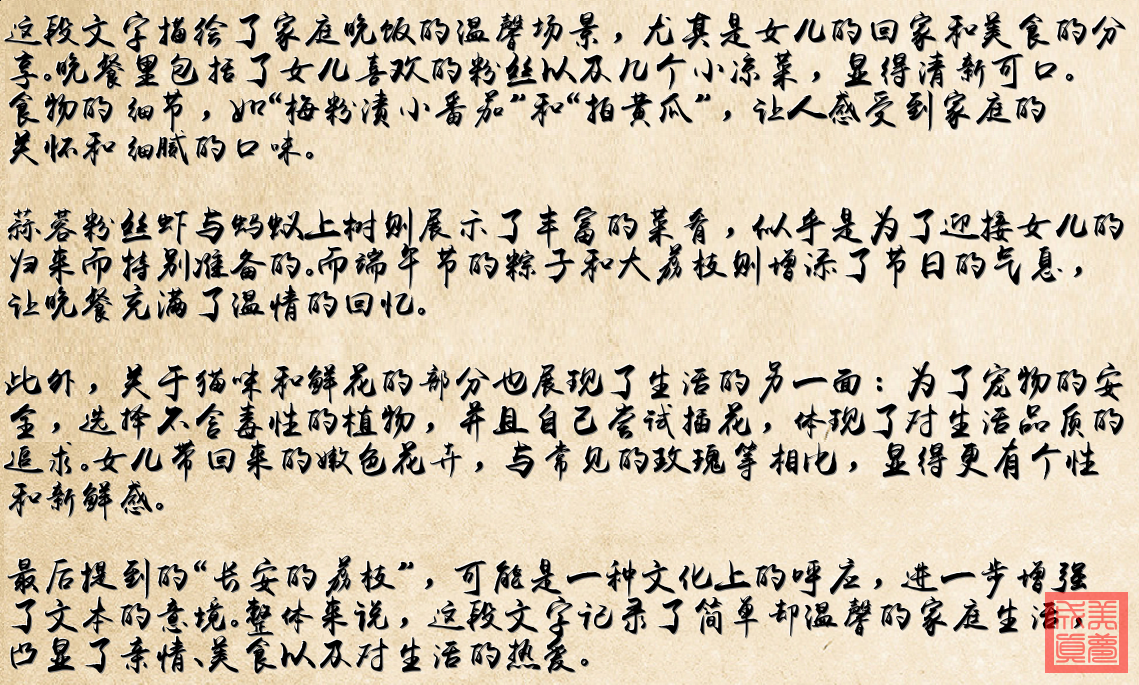 这段文字描绘了家庭晚饭的温馨场景，尤其是女儿的回家和美食的分
享。晚餐里包括了女儿喜欢的粉丝以及几个小凉菜，显得清新可口。
食物的细节，如“梅粉渍小番茄”和“拍黄瓜”，让人感受到家庭的
关怀和细腻的口味。
蒜蓉粉丝虾与蚂蚁上树则展示了丰富的菜肴，似乎是为了迎接女儿的
归来而特别准备的。而端午节的粽子和大荔枝则增添了节日的气息，
让晚餐充满了温情的回忆。
此外，关于猫咪和鲜花的部分也展现了生活的另一面：为了宠物的安
全，选择不含毒性的植物，并且自己尝试插花，体现了对生活品质的
追求。女儿带回来的嫩色花卉，与常见的玫瑰等相比，显得更有个性
和新鲜感。
最后提到的“长安的荔枝”，可能是一种文化上的呼应，进一步增强
了文本的意境。整体来说，这段文字记录了简单却温馨的家庭生活，
凸显了亲情、美食以及对生活的热爱。
美梦成真